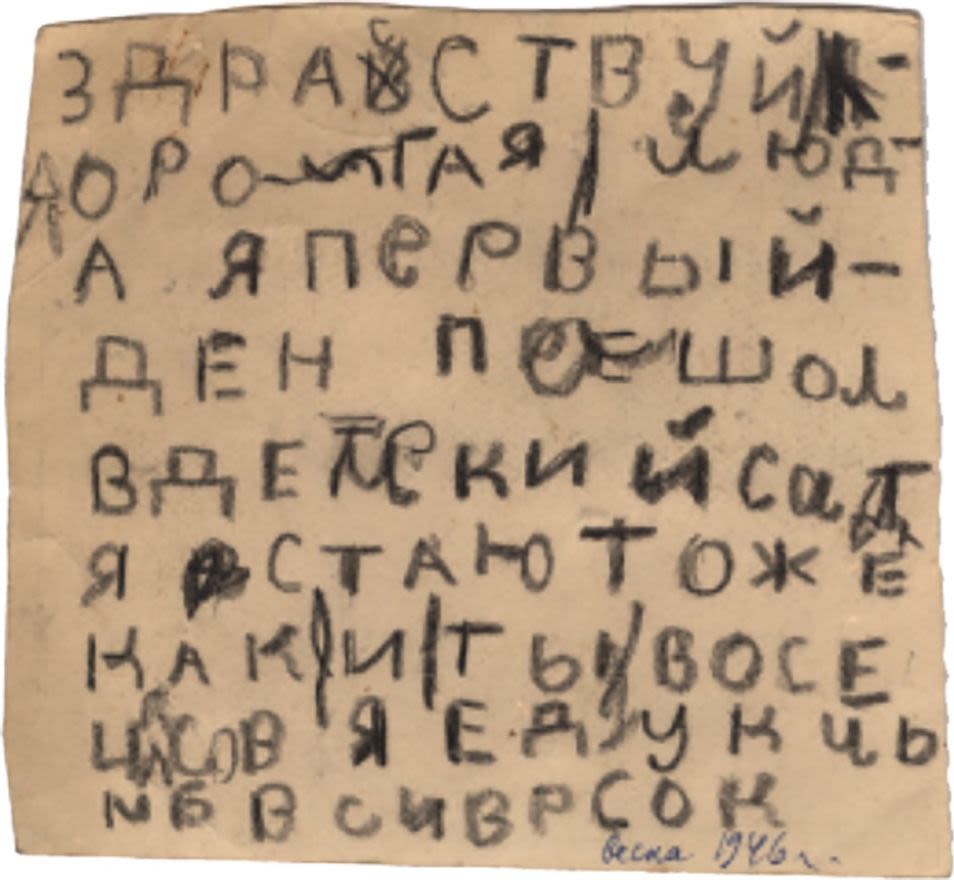 ЗДРАВСТВУЙ-
ДОРОГАЯ ЛЮД-
А Я ПЕРВЫЙ-
ДЕН ПОШОЛ
В ДЕТСКИЙ САД
Я ВСТАЮ ТОЖЕ
КАК И ТЫ ВОСЕ
ЧАСОВ Я ЕДУ К
В СИВРСОК
весна 1946 г.